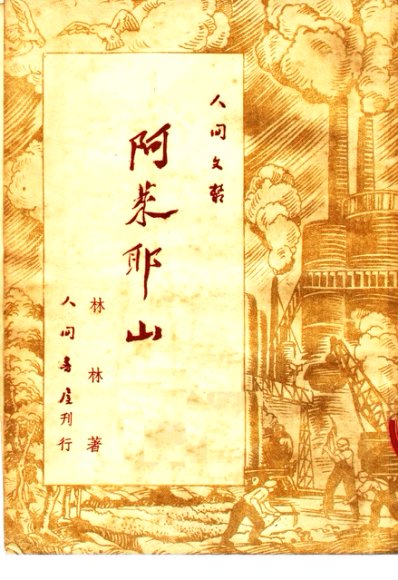 人间文丛
阿莱耶山
林林著
人间书店刊行